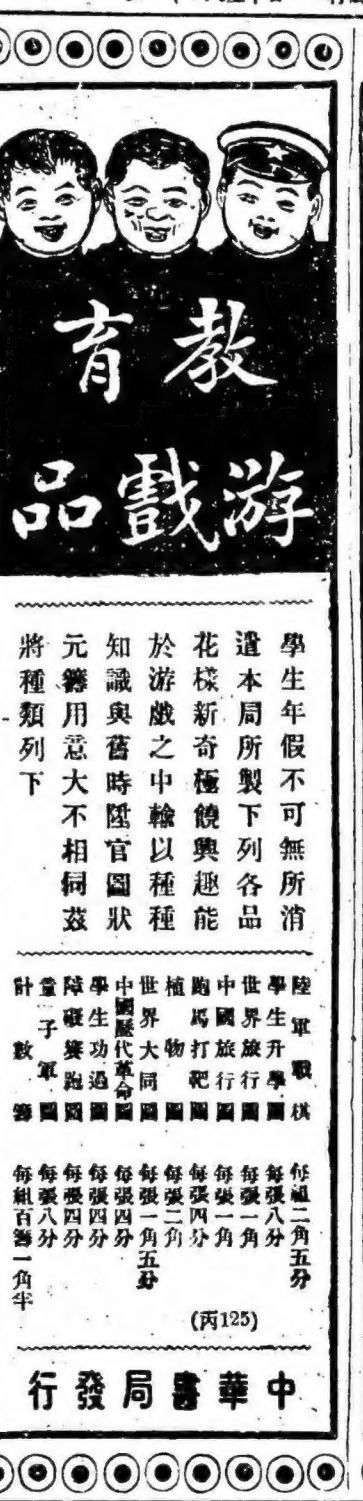 教育
游戲品
學生年假不可無所消
遣本局所製下列各品
花樣新奇極饒興趣能
於游戲之中輸以種種
知識與舊時陞官圖狀
元籌用意大不相同茲
將種類列下
陸軍戰棋 每組二角五分
學生升學圖 每張八分
世界旅行圖 每張一角
中國旅行圖 每張一角
跑馬打靶圖 每張四分
植物圖 每張二角
世界大同圖 每張一角五分
中國歷代革命圖 每張四分
學生功過圖 每張四分
障礙賽跑圖 每張四分
童子軍圖 每張八分
計數籌 每組百籌一角半
(丙125)
中華書局發行